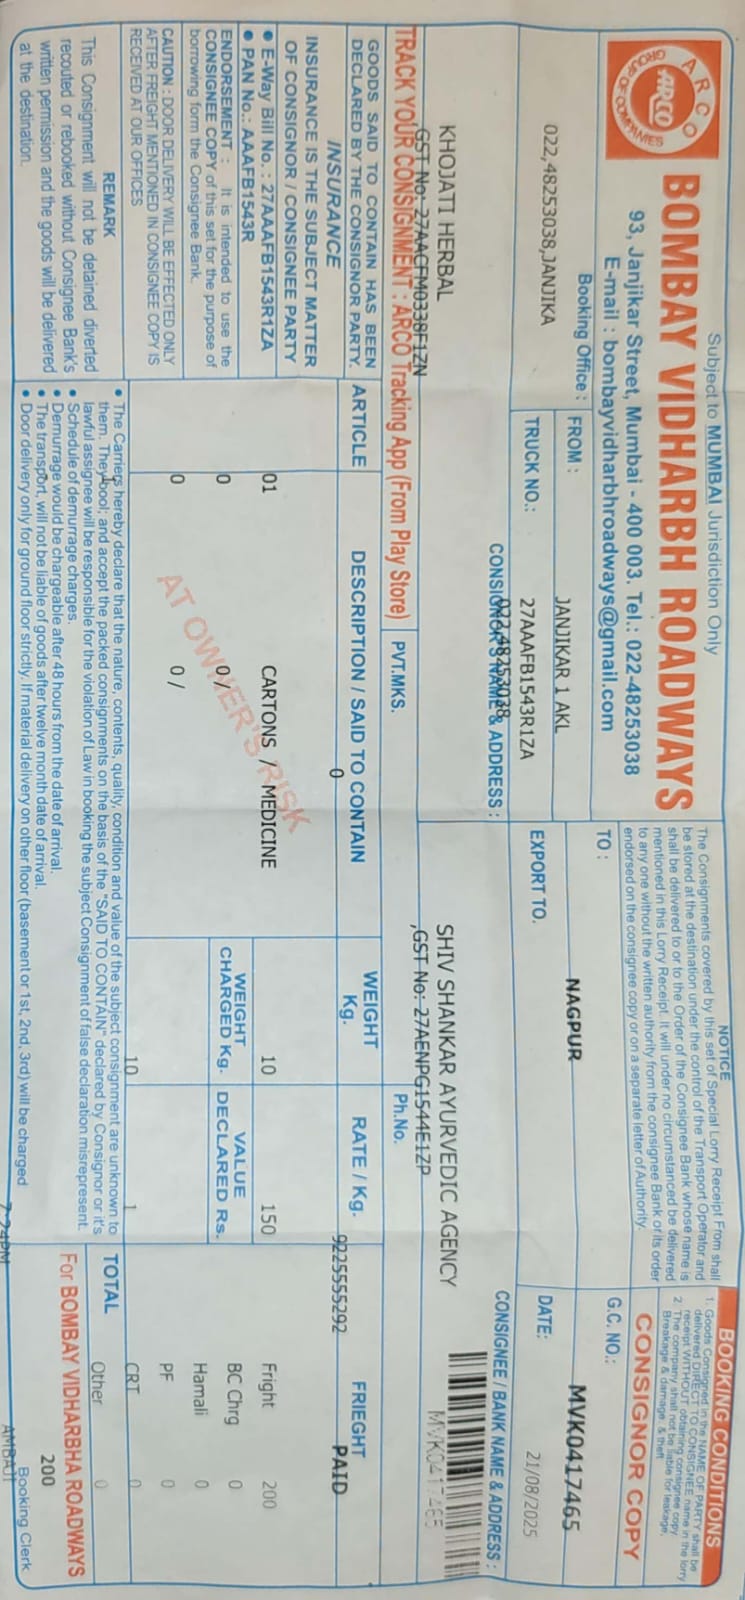 Subject to MUMBAI Jurisdiction Only
ARCO
ARCO
GROUP OF COMPANIES
BOMBAY VIDHARBH ROADWAYS
93, Janjikar Street, Mumbai - 400 003. Tel.: 022-48253038
E-mail : bombayvidharbhroadways@gmail.com
NOTICE
The Consignments covered by this set of Special Lorry Receipt From shall
be stored at the destination under the control of the Transport Operator and
shall be delivered to or to the Order of the Consignee Bank whose name is
mentioned in this Lorry Receipt. It will under no circumstanced be delivered
to any one without the written authority from the consignee Bank or its order
endorsed on the consignee copy or on a separate letter of Authority.
BOOKING CONDITIONS
1. Goods Consigned in the NAME OF PARTY shall be
delivered DIRECT TO CONSIGNEE name in the lorry
receipt WITHOUT obtaining consignee copy.
2. The company shall not be liable for leakage,
Breakage & damage. & theft
CONSIGNOR COPY
Booking Office :
022,48253038,JANJIKA
FROM :
JANJIKAR 1 AKL
TO :
NAGPUR
G.C. NO.:
MVK0417465
TRUCK NO.:
27AAAFB1543R1ZA
EXPORT TO.
DATE:
21/08/2025
CONSIGNOR'S NAME & ADDRESS :
022,48253038
CONSIGNEE / BANK NAME & ADDRESS :
KHOJATI HERBAL
GST No: 27AACFM0338F1ZN
SHIV SHANKAR AYURVEDIC AGENCY
,GST No: 27AENPG1544E1ZP
MVK0417465
TRACK YOUR CONSIGNMENT : ARCO Tracking App (From Play Store)
PVT.MKS.
Ph.No.
GOODS SAID TO CONTAIN HAS BEEN
DECLARED BY THE CONSIGNOR PARTY.
ARTICLE
DESCRIPTION / SAID TO CONTAIN
0
WEIGHT
Kg.
RATE / Kg.
9225555292
FRIEGHT
PAID
INSURANCE
INSURANCE IS THE SUBJECT MATTER
OF CONSIGNOR / CONSIGNEE PARTY
• E-Way Bill No. : 27AAAFB1543R1ZA
• PAN No.: AAAFB1543R
01
CARTONS / MEDICINE
10
150
Fright 200
ENDORSEMENT : It is intended to use the
CONSIGNEE COPY of this set for the purpose of
borrowing form the Consignee Bank.
0
0 /
WEIGHT
CHARGED Kg.
VALUE
DECLARED Rs.
BC Chrg 0
Hamali 0
CAUTION : DOOR DELIVERY WILL BE EFFECTED ONLY
AFTER FREIGHT MENTIONED IN CONSIGNEE COPY IS
RECEIVED AT OUR OFFICES
0
0 /
AT OWNER'S RISK
10
1
PF 0
CRT 0
REMARK
This Consignment will not be detained diverted
recouted or rebooked without Consignee Bank's
written permission and the goods will be delivered
at the destination.
• The Carriers hereby declare that the nature, contents, quality, condition and value of the subject consignment are unknown to
them. They bool; and accept the packed consignments on the basis of the "SAID TO CONTAIN" declared by Consignor or it's
lawful assignee will be responsible for the violation of Law in booking the subject Consignment of false declaration misrepresent.
• Schedule of demurrage charges.
• Demurrage would be chargeable after 48 hours from the date of arrival.
• The transport, will not be liable of goods after twelve month date of arrival.
• Door delivery only for ground floor strictly. If material delivery on other floor (basement or 1st, 2nd, 3rd) will be charged
TOTAL
Other 0
For BOMBAY VIDHARBHA ROADWAYS
200
Booking Clerk
7:24PM
AMBAJI